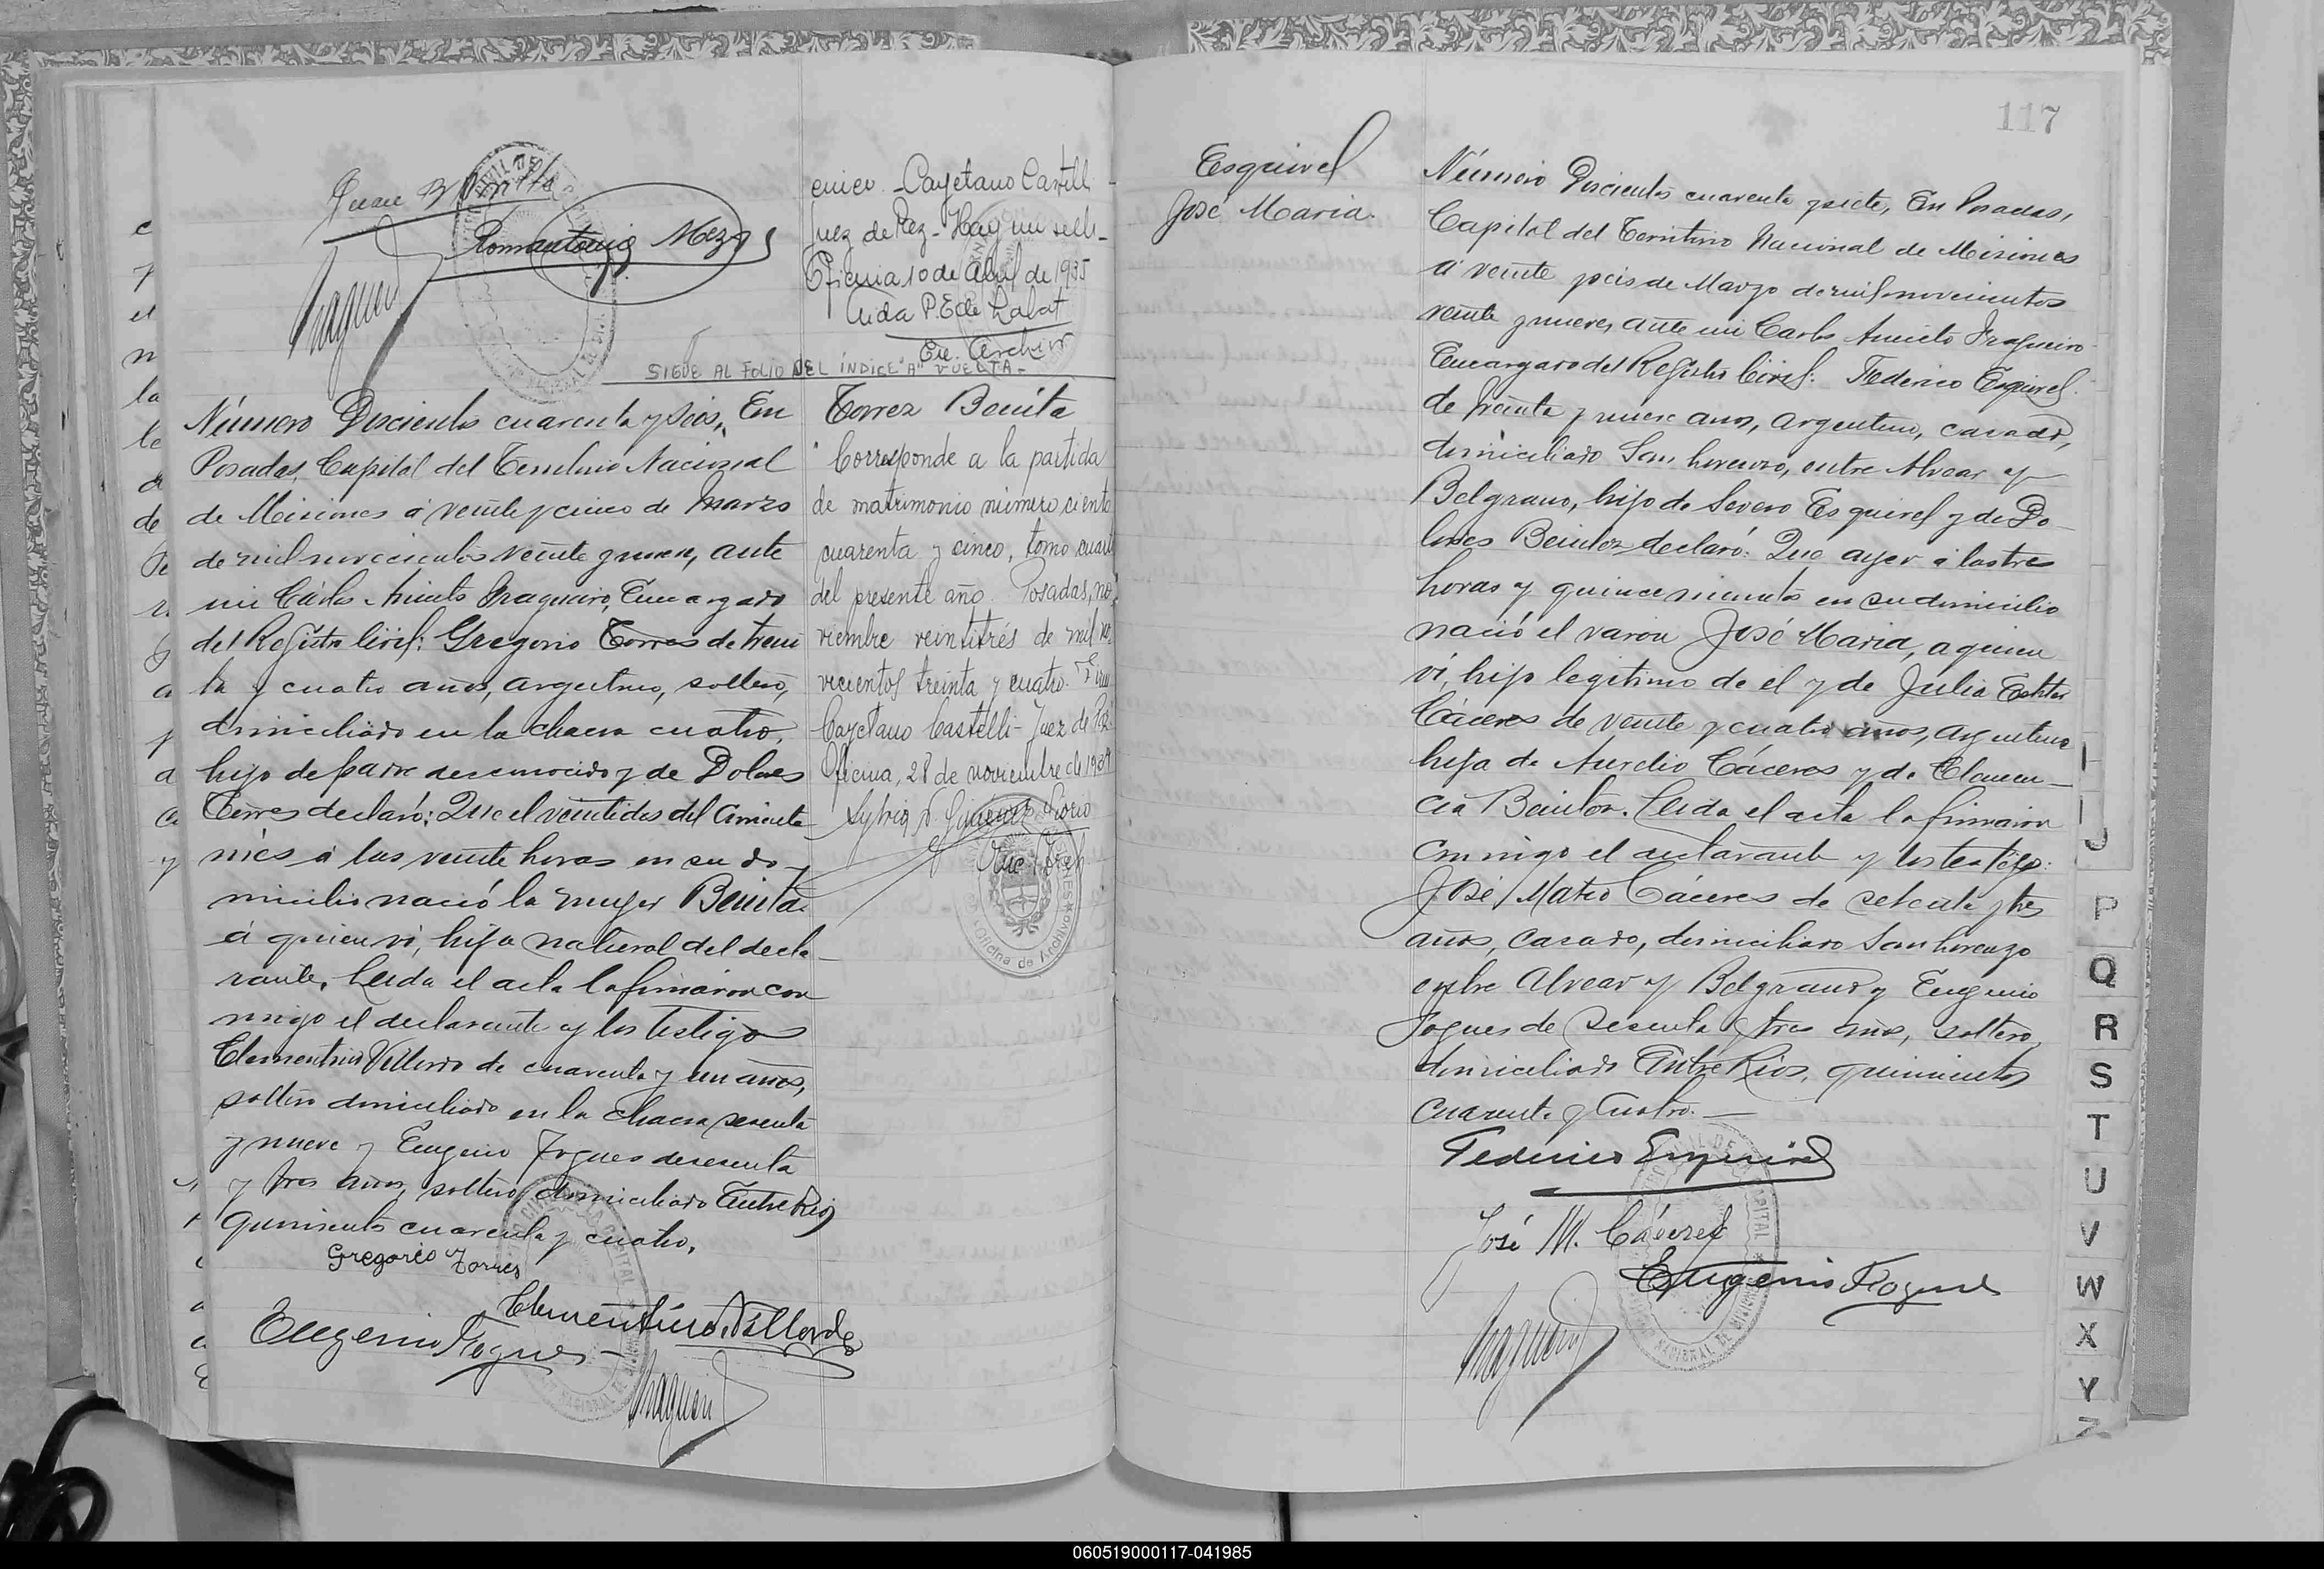 Juan B Bonilla
Romantonio Meza
cuico - Cayetano Castelli -
Juez de Paz - Hay un sello -
Oficina 10 de Abril de 1935
Aida P. E de Labat
Enc. Archivo
SIGUE AL FOLIO DEL ÍNDICE "A" VUELTA -
Número Doscientos cuarenta y seis, En
Posadas, Capital del Territorio Nacional
de Misiones á veinte y cinco de Marzo
de mil novecientos veinte y nueve, ante
mi Cárlos Aniceto Fragueiro, Encargado
del Registro Civil: Gregorio Torres de trein
ta y cuatro años, argentino, soltero,
domiciliado en la chacra cuatro,
hijo de padre desconocido y de Dolores
Torres declaró: Que el veintidos del corriente
mes á las veinte horas en su do-
micilio nació la mujer Benita
á quien ví, hija natural del decla-
rante. Leida el acta la firmaron con
migo el declarante y los testigos
Clementino Villordo de cuarenta y un años,
soltero domiciliado en la chacra sesenta
y nueve y Eugenio Jogues de sesenta
y tres años, soltero, domiciliado Entre Rios
quinientos cuarenta y cuatro.
Gregorio Torres
Clementino Villordo
Eugenio Jogues
Fragueiro
Torrez Benita
"Corresponde a la partida
de matrimonio número ciento
cuarenta y cinco, tomo cuarto
del presente año. Posadas, no
viembre veintitrés de mil no
vecientos treinta y cuatro. Firm
Cayetano Castelli - Juez de Paz
Oficina, 28 de noviembre de 1934
Oficina de Archivo
117
Esquivel
José Maria.
Número Doscientos cuarenta y siete, En Posadas,
Capital del Territorio Nacional de Misiones
á veinte y seis de Marzo de mil novecientos
veinte y nueve, ante mi Carlos Aniceto Fragueiro
Encargado del Registro Civil: Federico Esquivel
de treinta y nueve anos, argentino, casado,
domiciliado San Lorenzo, entre Alvear y
Belgrano, hijo de Severo Esquivel y de Do-
lores Benitez declaró: Que ayer á las tres
horas y quince minutos en su domicilio
nació el varon José Maria, a quien
ví, hijo legitimo de el y de Julia Esther
Cáceres de veinte y cuatro años, argentina
hija de Aurelio Cáceres y de Clemen-
cia Benitez. Leida el acta la firmaron
conmigo el declarante y los testigos:
José Mateo Cáceres de setenta y tres
años, casado, domiciliado San Lorenzo
entre Alvear y Belgrano y Eugenio
Jogues de sesenta y tres años, soltero,
domiciliado Entre Rios, quinientos
cuarenta y cuatro. -
Federico Esquivel
José M. Cáceres
Eugenio Jogues
Fragueiro
I
J
P
Q
R
S
T
U
V
W
X
Y
Z
060519000117-041985